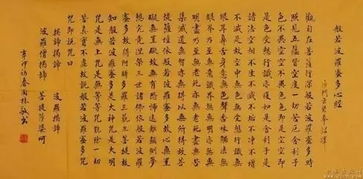 般若波羅蜜多心經
沙門玄奘奉詔譯
觀自在菩薩行深般若波羅蜜多時
照見五蘊皆空度一切苦厄舍利子
色不異空空不異色色即是空空即
是色受想行識亦復如是舍利子是
諸法空相不生不滅不垢不淨不增
不減是故空中無色無受想行識
無眼耳鼻舌身意無色聲香味觸法無
眼界乃至無意識界無無明亦無無
明盡乃至無老死亦無老死盡無苦
集滅道無智亦無得以無所得故菩
提薩埵依般若波羅蜜多故心無罣
礙無罣礙故無有恐怖遠離顛倒夢
想究竟涅槃三世諸佛依般若波羅
蜜多故得阿耨多羅三藐三菩提故
知般若波羅蜜多是大神咒是大明
咒是無上咒是無等等咒能除一切
苦真實不虛故說般若波羅蜜多
咒即說咒曰
揭諦揭諦 波羅揭諦
波羅僧揭諦 菩提薩婆訶